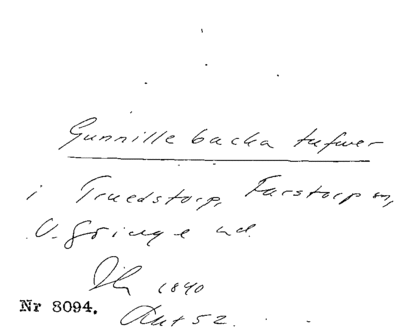 Gunnille backa tufwer
i Truedstorp, Farstorp sn,
V. Göinge hd.
1840
Nr 8094.
Akt 52.